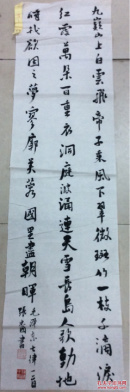 九嶷山上白雲飛帝子乘風下翠微斑竹一枝千滴淚
紅霞萬朵百重衣洞庭波涌連天雪長島人歌動地
詩我欲因之夢寥廓芙蓉國里盡朝暉 毛澤东七律一首
張 書